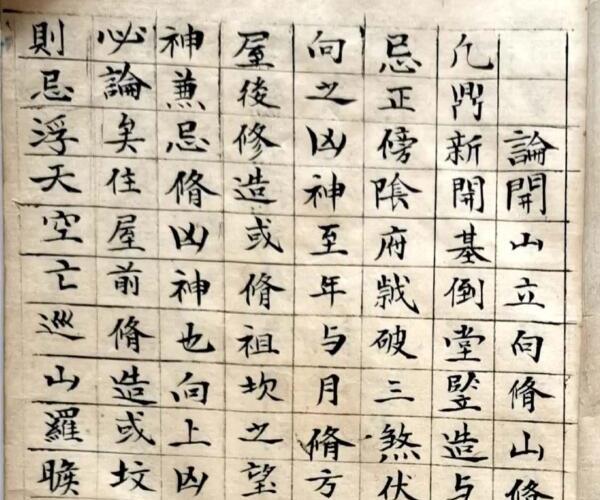 論開山立向脩山脩
凢鼎新開基倒堂竪造与
忌正傍陰府歲破三煞伏
向之凶神至年与月脩方
屋後修造或脩祖坎之望
神兼忌脩凶神也向上凶
必論矣住屋前脩造或坟
則忌浮天空亡巡山羅睺